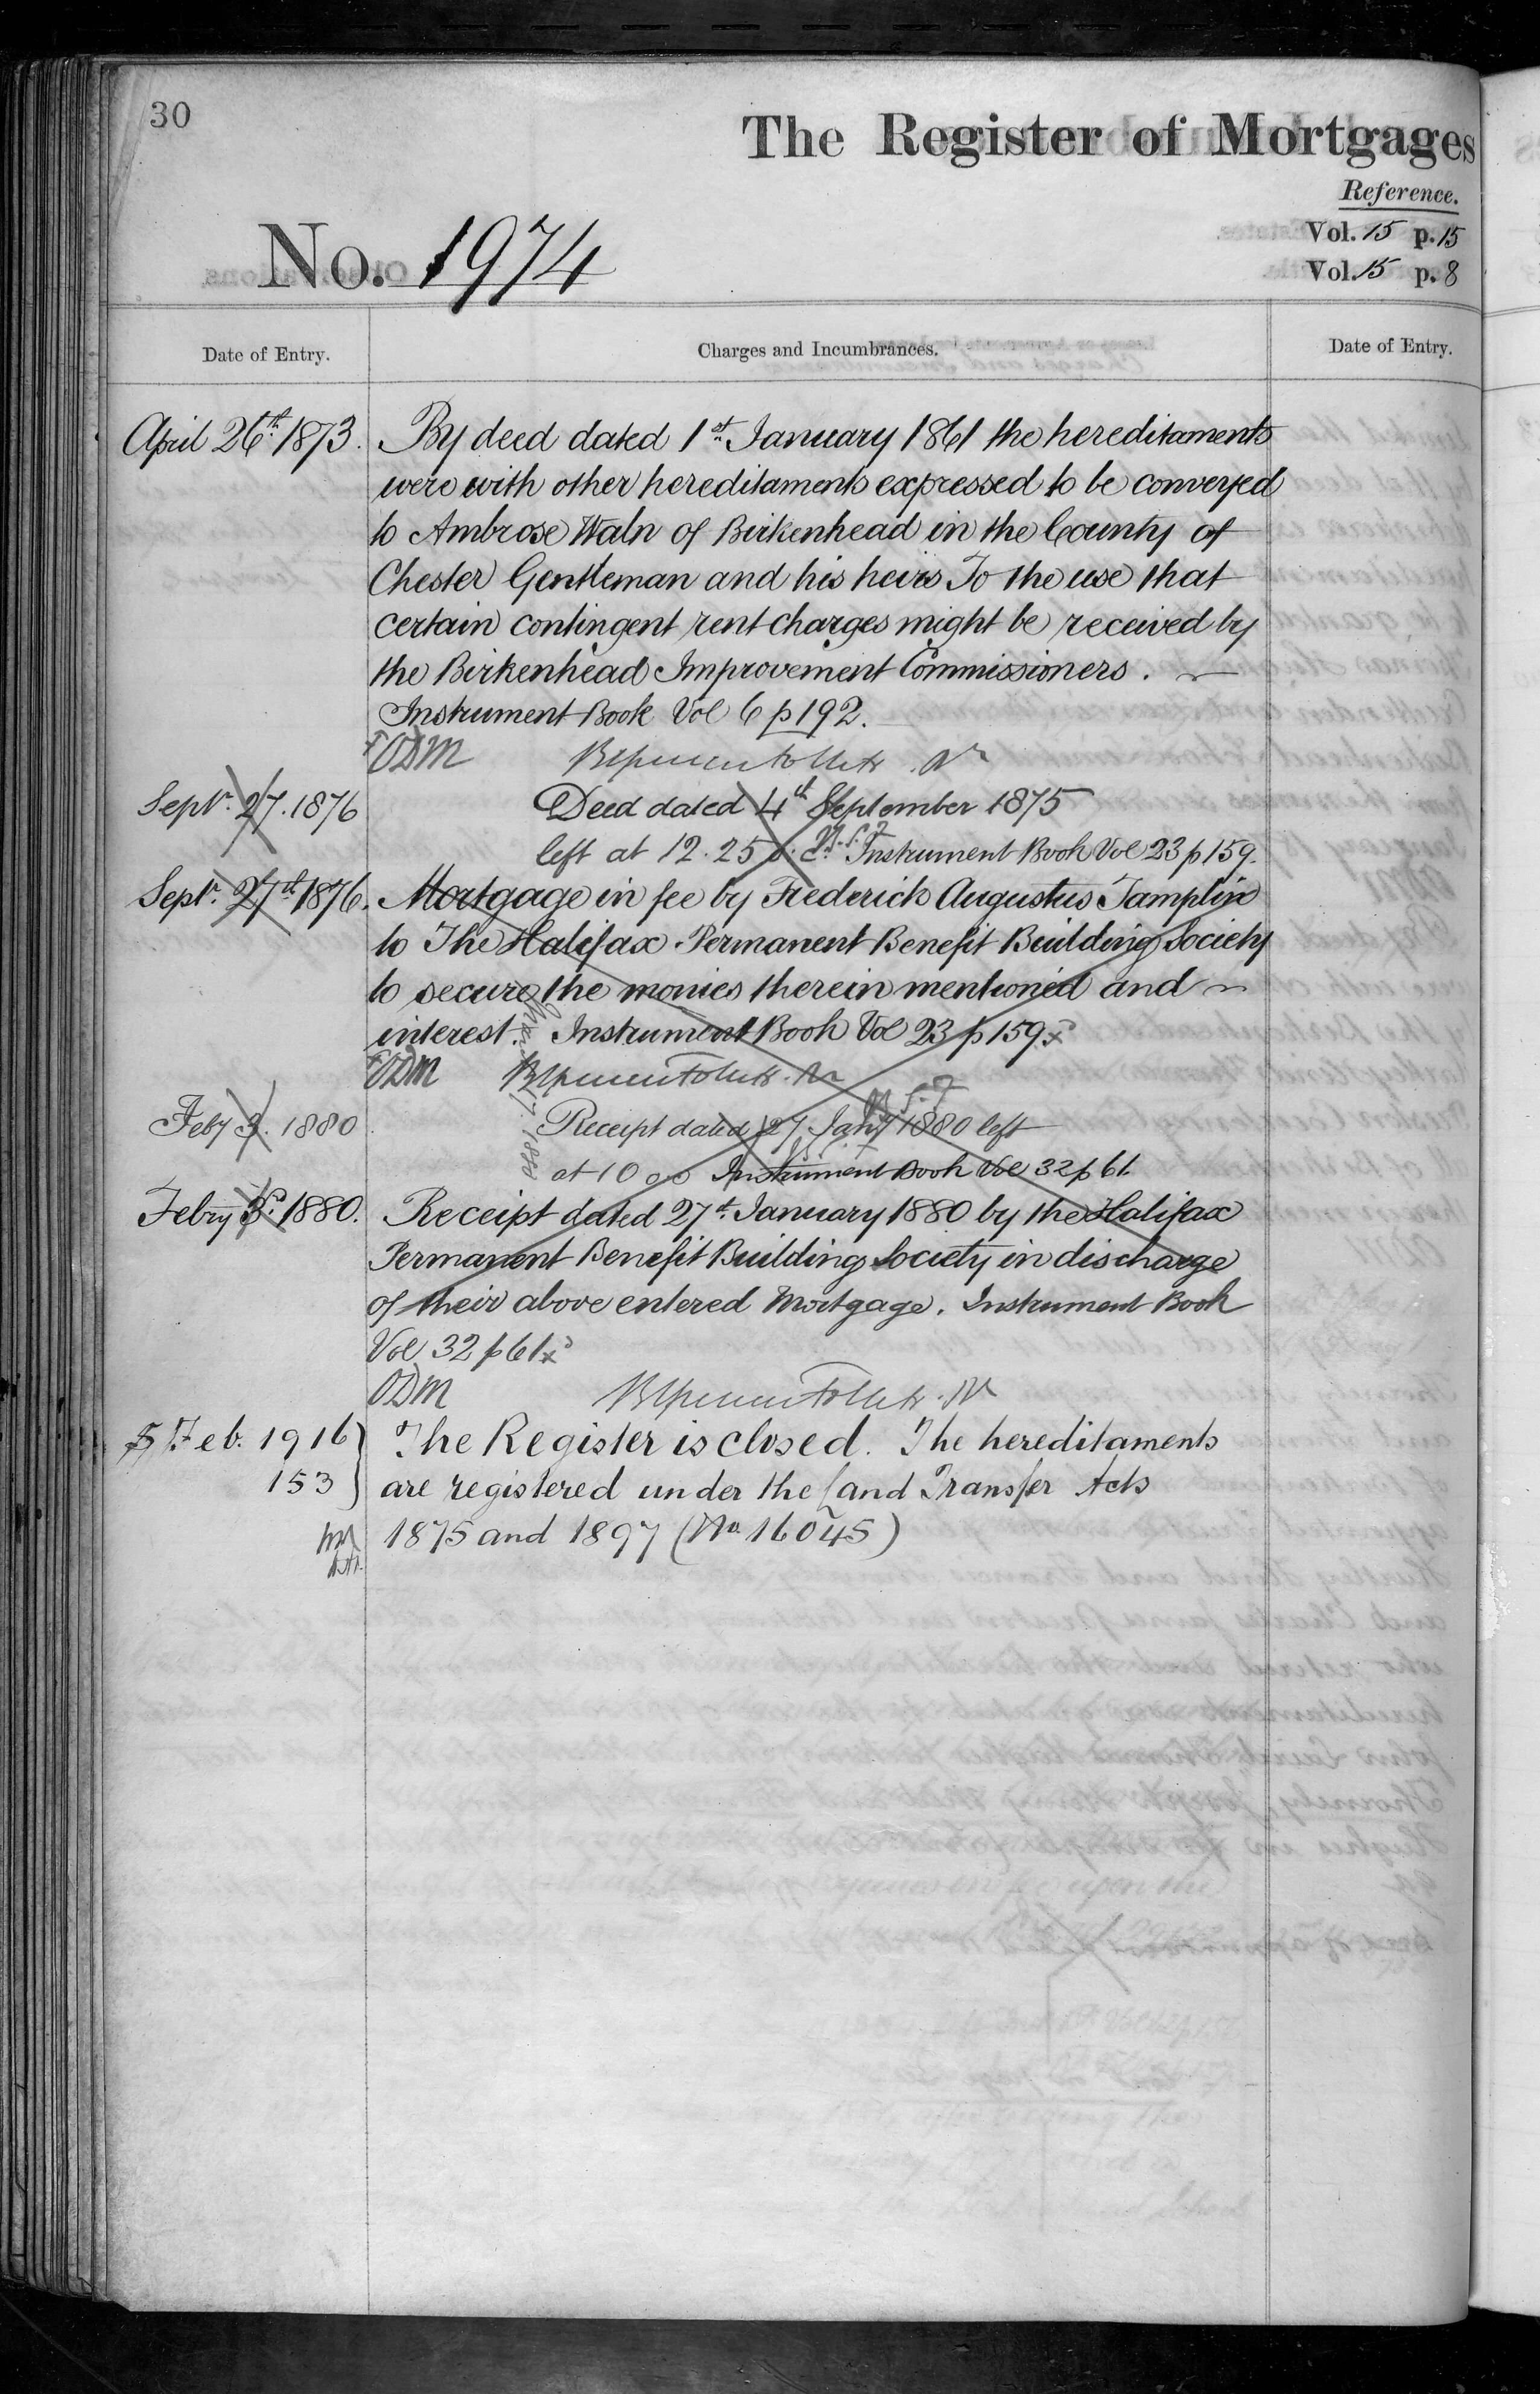 30
The Register of Mortgages
Reference.
Vol. 15 p. 15
Vol. 15 p. 8
No. 1974
Date of Entry. Charges and Incumbrances. Date of Entry.
April 26th 1873. By deed dated 1st January 1861 the hereditaments
were with other hereditaments expressed to be conveyed
to Ambrose Waln of Birkenhead in the County of
Chester Gentleman and his heirs To the use that
certain contingent rent charges might be received by
the Birkenhead Improvement Commissioners.
Instrument Book Vol 6 p 192.
ODM
Septr. 27. 1876 Deed dated 4th September 1875
left at 12.25 Instrument Book Vol 23 p 159.
Septr. 27th 1876. Mortgage in fee by Frederick Augustus Tamplin
to The Halifax Permanent Benefit Building Society
to secure the monies therein mentioned and
interest. Instrument Book Vol 23 p 159.
ODM
Feby 3. 1880 Receipt dated 27 Jany 1880 left
at 10 Instrument Book Vol 32 p 61.
Febry 3. 1880. Receipt dated 27th January 1880 by the Halifax
Permanent Benefit Building Society in discharge
of their above entered Mortgage. Instrument Book
Vol 32 p 61
ODM
5 Feb. 1916 The Register is closed. The hereditaments
153 are registered under the Land Transfer Acts
1875 and 1897 (No. 16045)